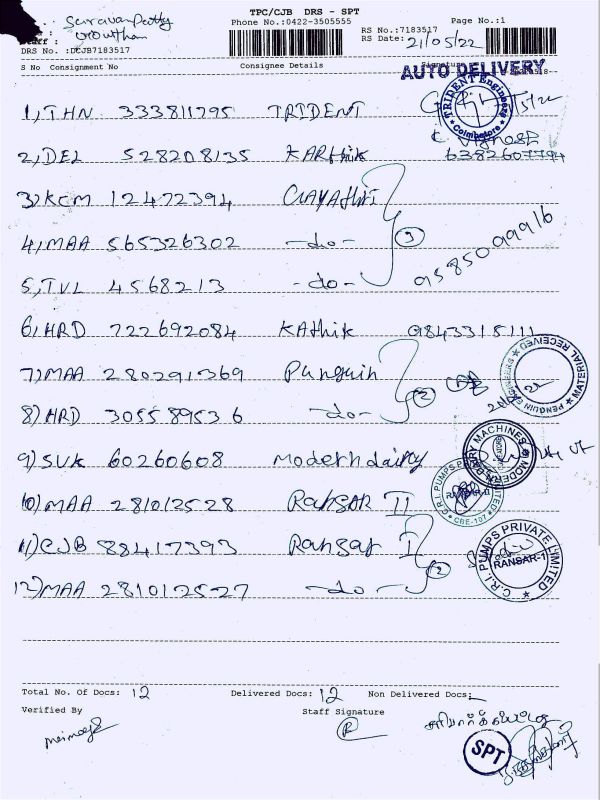 TPC/CJB DRS - SPT
Saravanpatty
Phone No.:0422-3505555 Page No.:1
Gowtham
RS No.:7183517
Staff :
RS Date: 21/05/22
DRS No. :DCJB7183517
S No Consignment No Consignee Details Signature
AUTO DELIVERY
1) THN 333811795 TRIDENT
TRIDENT Engineers Coimbatore
C. Vignesh
2) DEL 528208135 KARthik 6382607794
3) KCM 12472394 GAYAthRi
4) MAA 565326302 -do- 3 9585099916
5) TVL 4568213 -do-
6) HRD 722692084 KAthik 9843315111
7) MAA 280291369 Punguin
PENGUIN ENGINEERS MATERIAL RECEIVED
8) HRD 305589536 -do- 2
9) SVK 60260608 Modern dairy
MODERN DAIRY MACHINES
10) MAA 281012528 RANSAR II
C.R.I. PUMPS PRIVATE LIMITED RANSAR-II CBE-107
11) CJB 88417393 Ransar I
C.R.I. PUMPS PRIVATE LIMITED RANSAR-1
12) MAA 281012527 -do- 2
Total No. Of Docs: 12 Delivered Docs: 12 Non Delivered Docs:-
Verified By Staff Signature
SPT